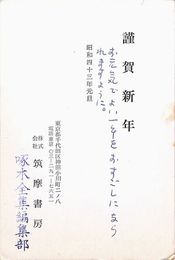 謹賀新年
お元気でよい一年をおすごしになら
れますように。
昭和四十三年元旦
東京都千代田区神田小川町二ノ八
電話東京(二九一)七六五一
株式会社 筑摩書房
啄木全集編集部